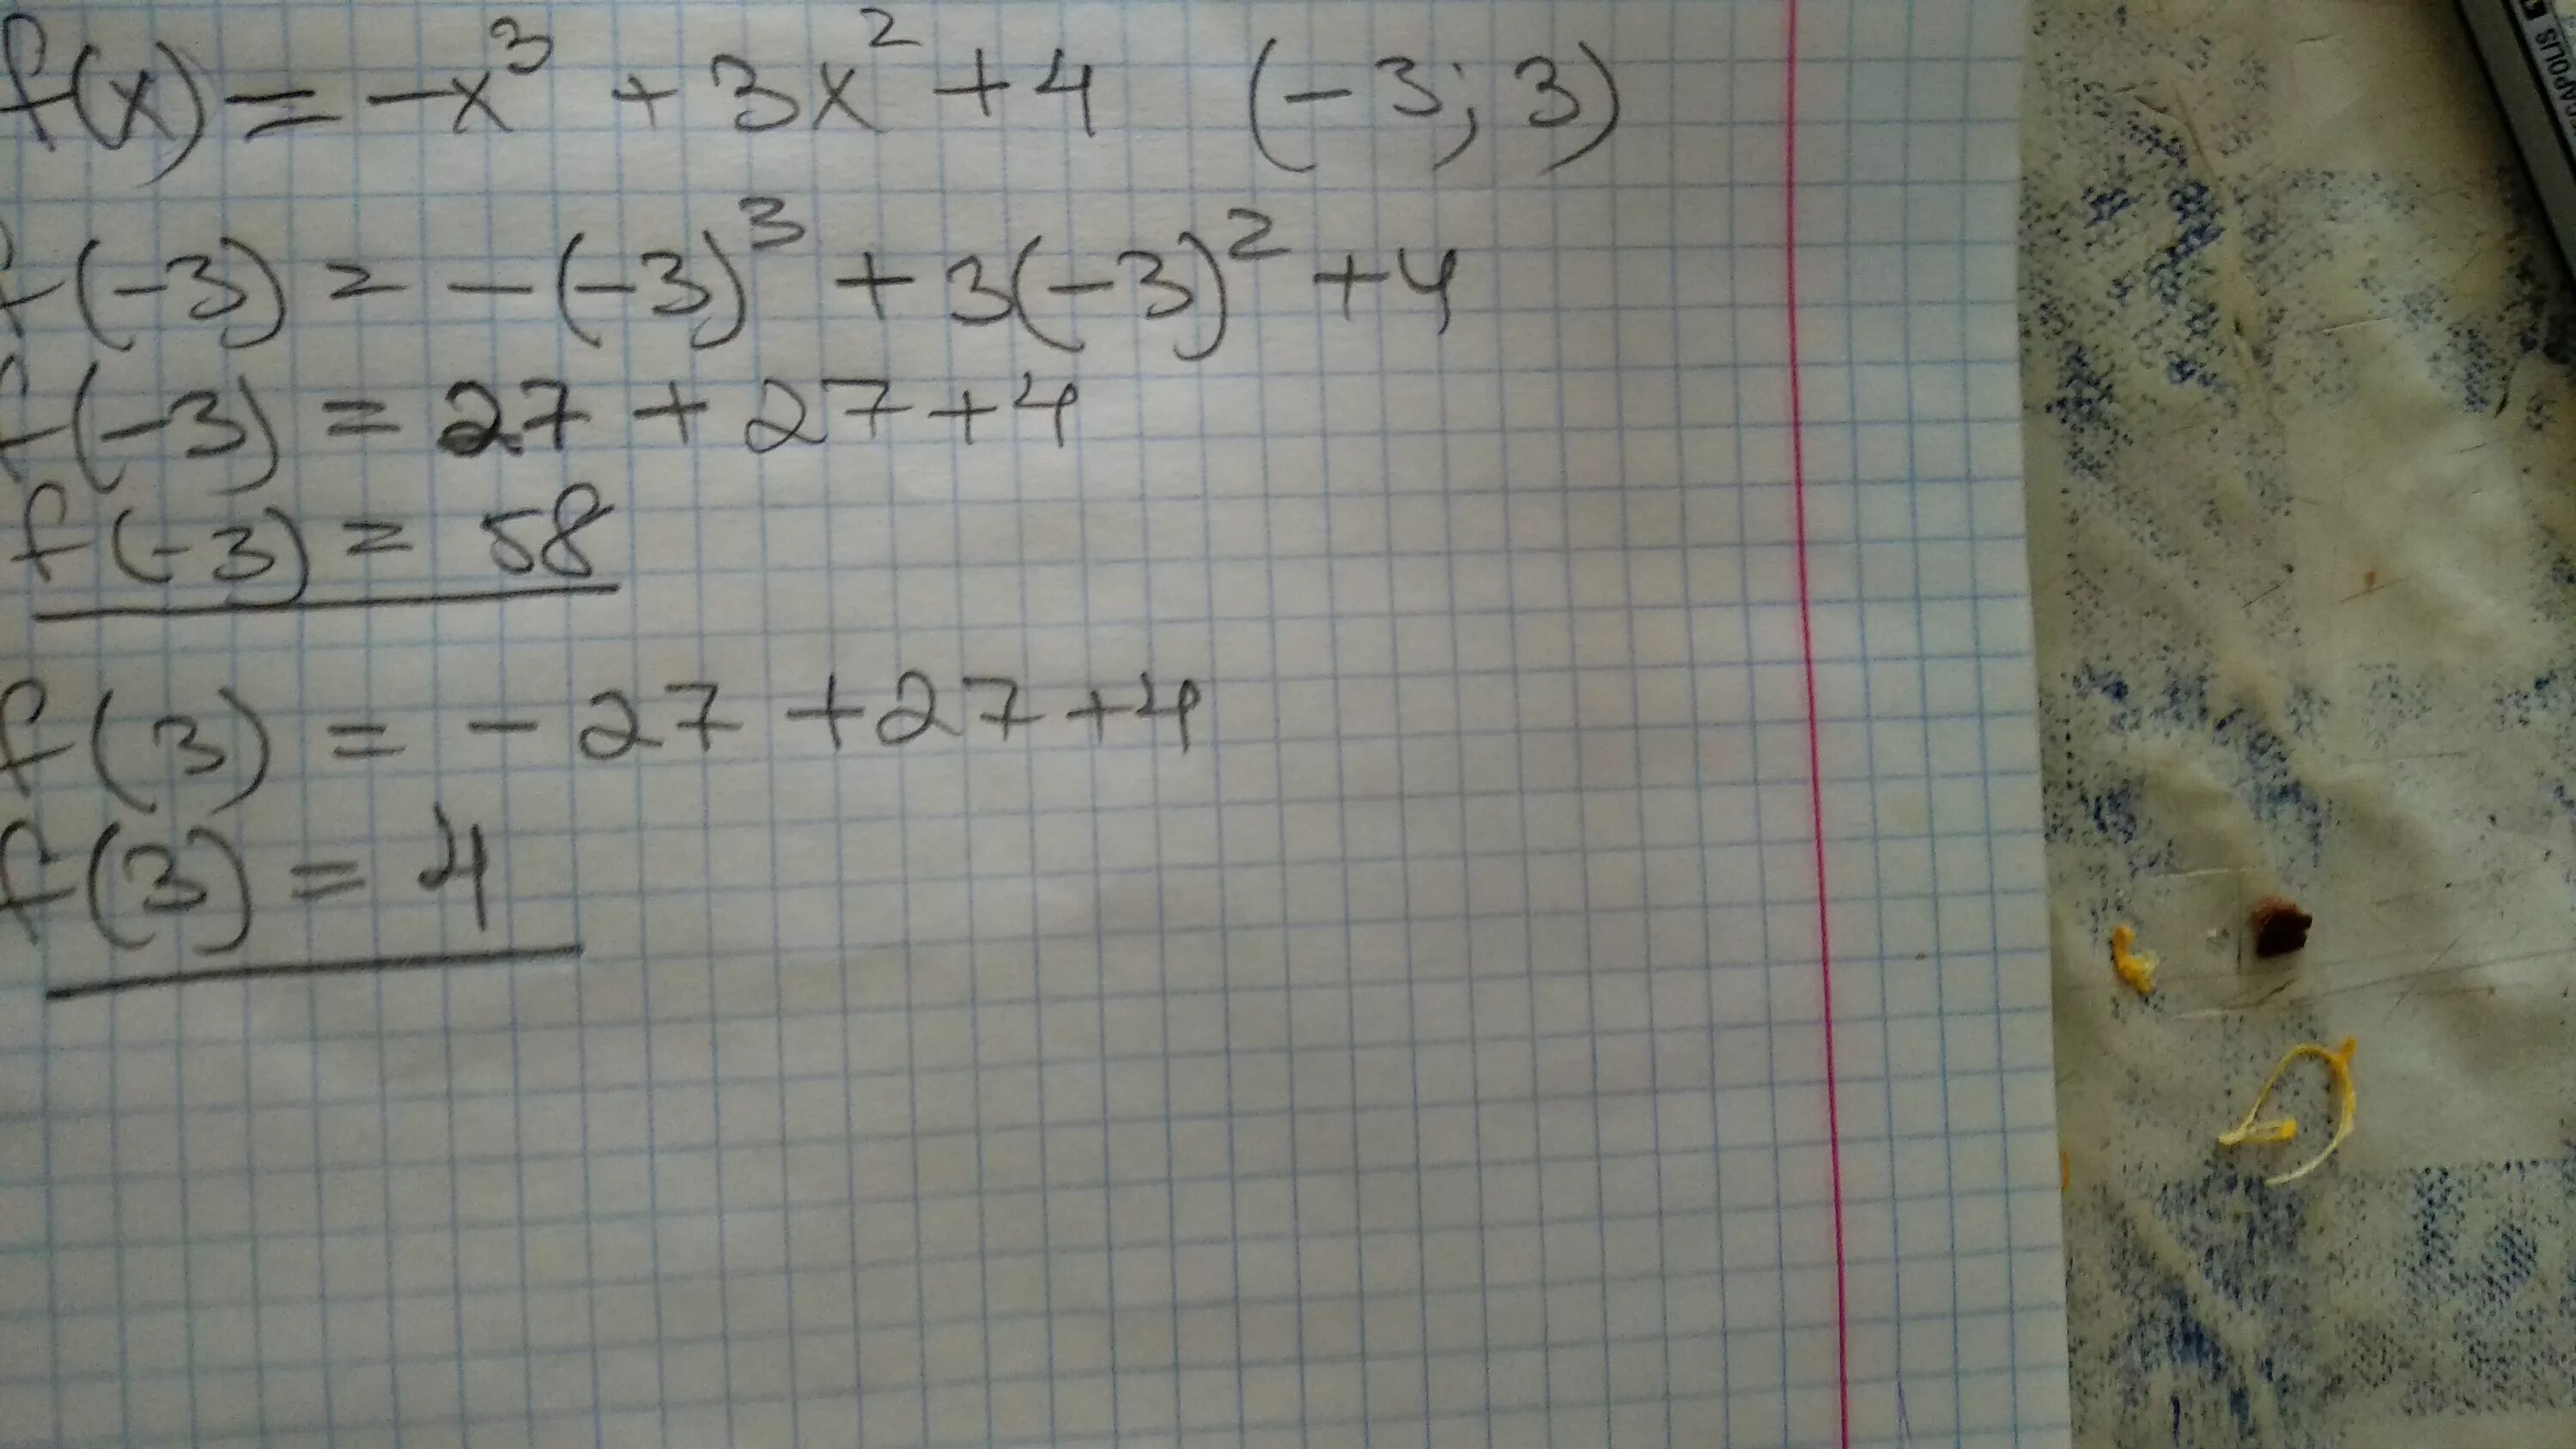 f(x) = -x³ + 3x² + 4 (-3; 3)
f(-3) = -(-3)³ + 3(-3)² + 4
f(-3) = 27 + 27 + 4
f(-3) = 58
f(3) = -27 + 27 + 4
f(3) = 4